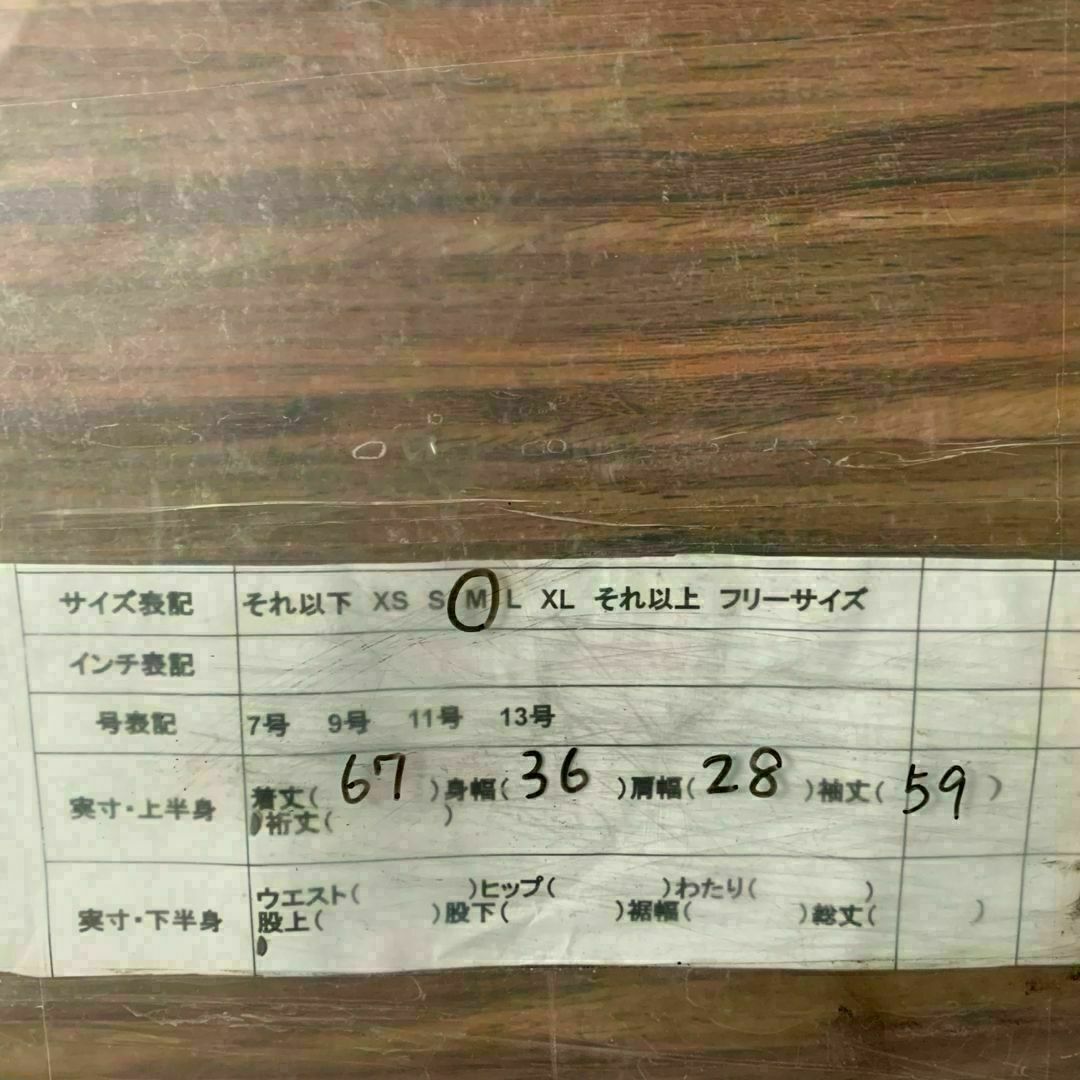 サイズ表記 それ以下 XS S M L XL それ以上 フリーサイズ
インチ表記
号表記 7号 9号 11号 13号
実寸・上半身 着丈( 67 )身幅( 36 )肩幅( 28 )袖丈( 59 )
裄丈( )
実寸・下半身 ウエスト( )ヒップ( )わたり( )
股上( )股下( )裾幅( )総丈( )